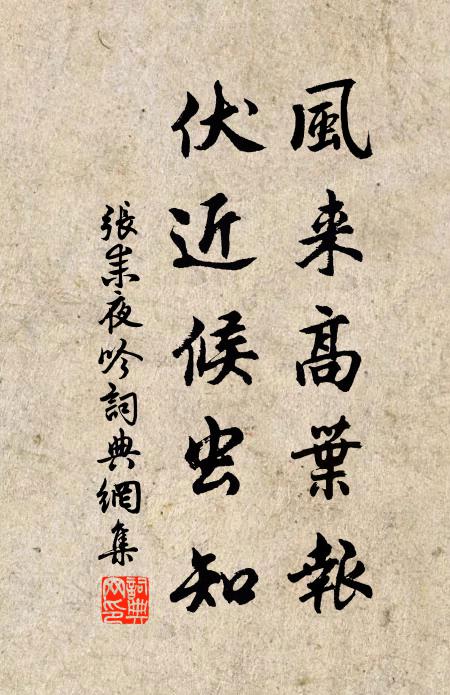 風来高葉報
伏近候虫知
張耒夜吟詞典網集
詞典